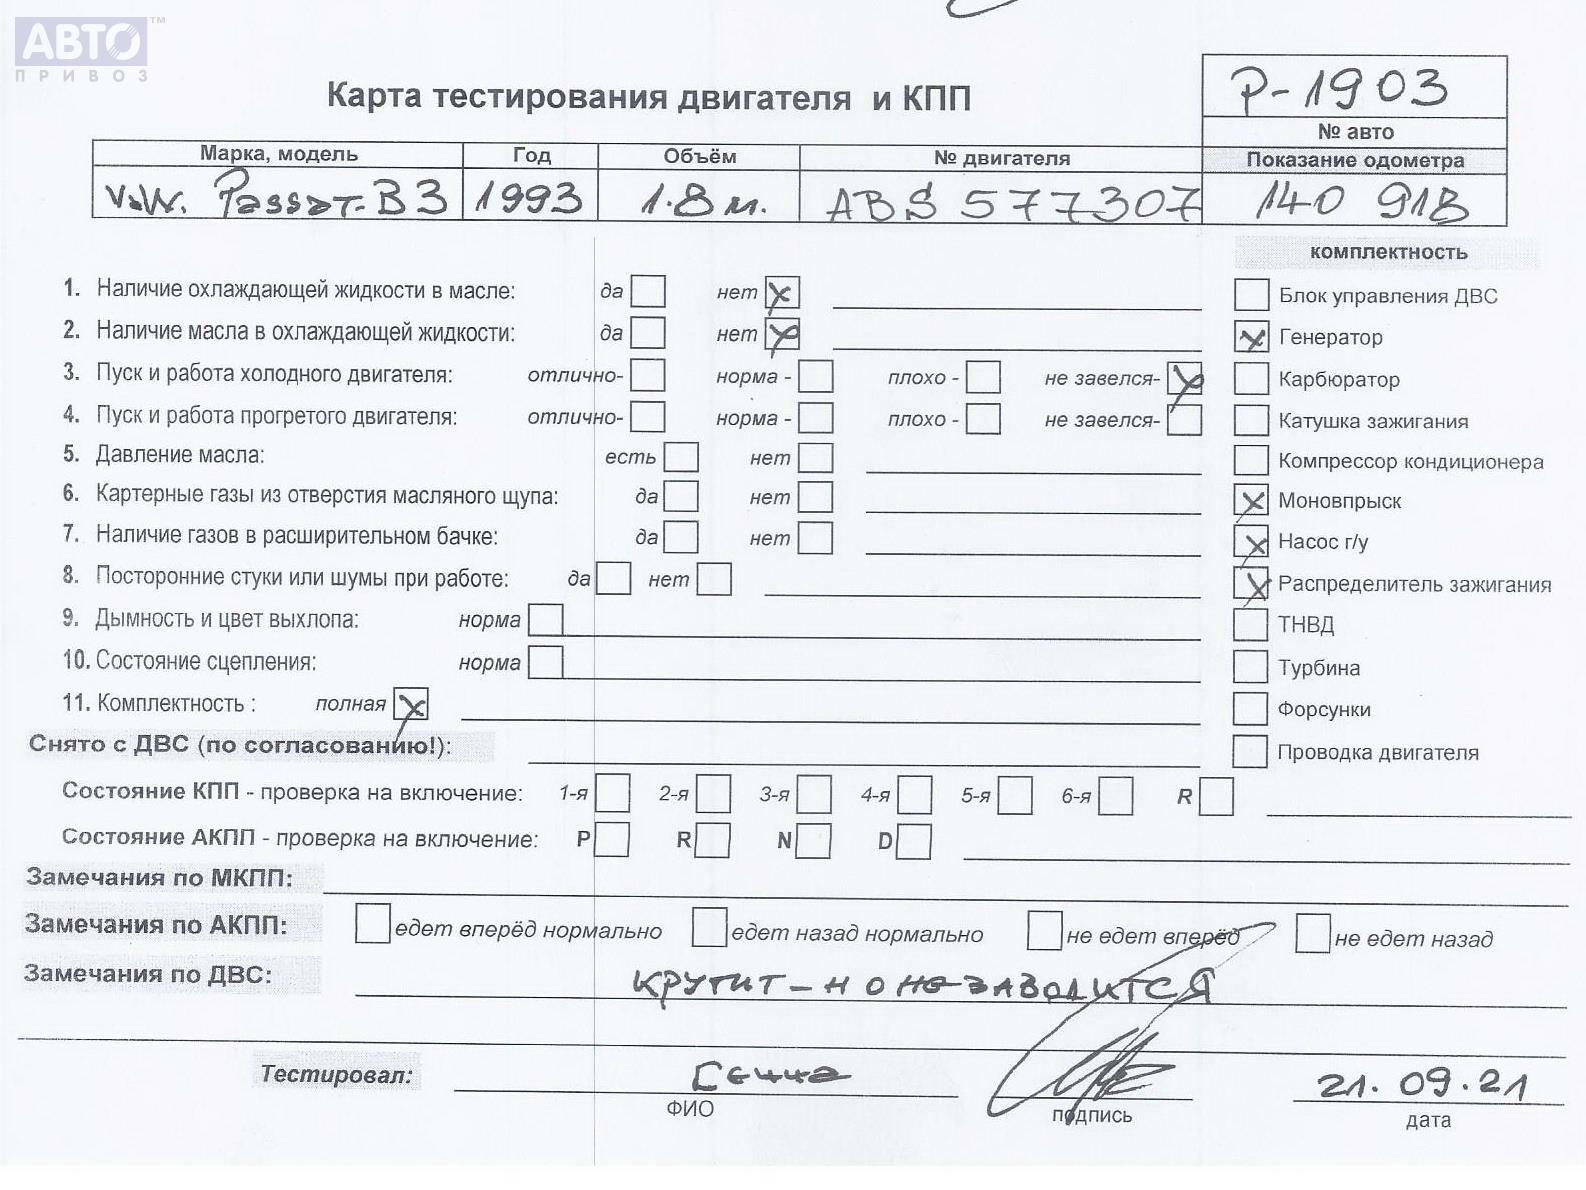 АВТО™
ПРИВОЗ
Карта тестирования двигателя и КПП
P-1903
№ авто
Марка, модель Год Объём № двигателя Показание одометра
V.W. Passат-B3 1993 1.8 м. ABS 577307 140 918
комплектность
1. Наличие охлаждающей жидкости в масле: да нет x Блок управления ДВС
2. Наличие масла в охлаждающей жидкости: да нет x x Генератор
3. Пуск и работа холодного двигателя: отлично- норма - плохо - не завелся- x Карбюратор
4. Пуск и работа прогретого двигателя: отлично- норма - плохо - не завелся- Катушка зажигания
5. Давление масла: есть нет Компрессор кондиционера
6. Картерные газы из отверстия масляного щупа: да нет x Моновпрыск
7. Наличие газов в расширительном бачке: да нет x Насос г/у
8. Посторонние стуки или шумы при работе: да нет x Распределитель зажигания
9. Дымность и цвет выхлопа: норма ТНВД
10. Состояние сцепления: норма Турбина
11. Комплектность : полная x Форсунки
Снято с ДВС (по согласованию!): Проводка двигателя
Состояние КПП - проверка на включение: 1-я 2-я 3-я 4-я 5-я 6-я R
Состояние АКПП - проверка на включение: P R N D
Замечания по МКПП:
Замечания по АКПП: едет вперёд нормально едет назад нормально не едет вперёд не едет назад
Замечания по ДВС: КРУТИТ-НО НЕ ЗАВОДИТСЯ
Тестировал: 21.09.21
ФИО подпись дата